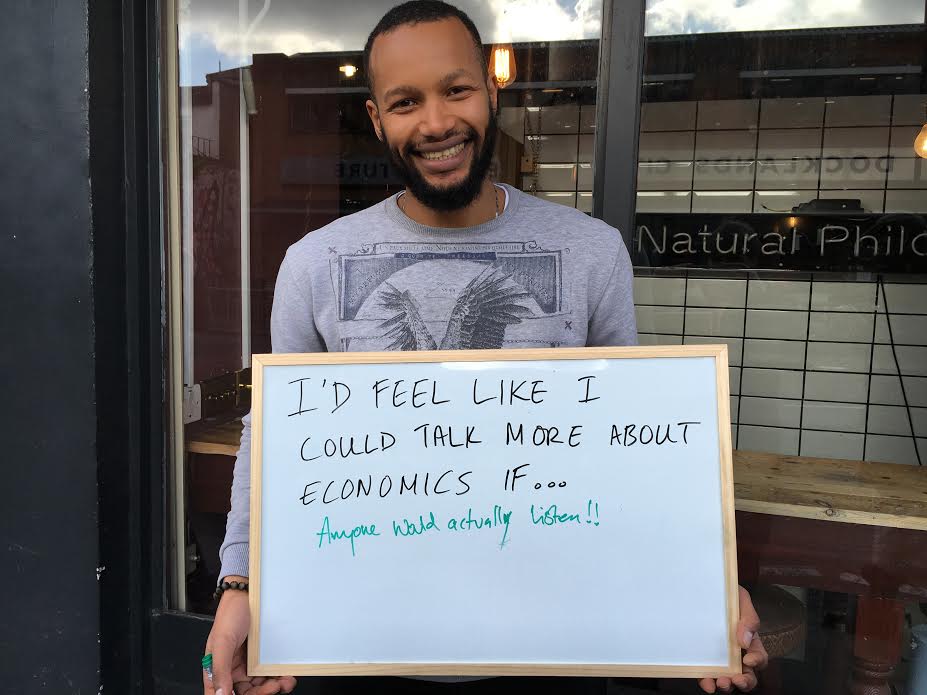 Natural Philo
I'D FEEL LIKE I
COULD TALK MORE ABOUT
ECONOMICS IF...
Anyone would actually listen!!